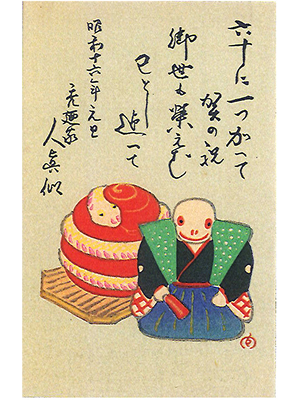 六十に一つかつて
賀の祝
御世も栄えむ
巳とし迎へて
昭和十六年元旦
人真似